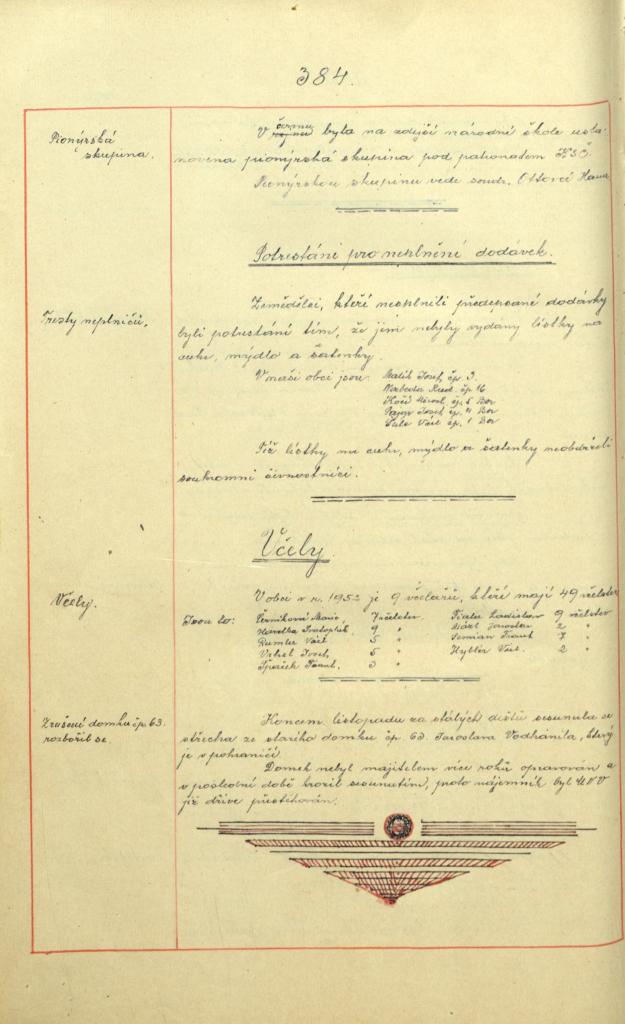 384.
Pionýrská
skupina.
V červnu byla na zdejší národní škole usta-
novena pionýrská skupina pod patronátem KSČ.
Pionýrskou skupinu vede soudr. Ottová Hana
Potrestání pro neplnění dodávek.
Tresty neplničů.
Zemědělci, kteří nesplnili předepsané dodávky
byli potrestáni tím, že jim nebyly vydány lístky na
cukr, mýdlo a šatenky.
V naší obci jsou: Malík Josef, čp. 3.
Rud. čp. 16
Kočí čp. 5 Bor
Josef čp. 4 Bor
Šulc Václ. čp. 1 Bor
Též lístky na cukr, mýdlo a šatenky neobdrželi
soukromní živnostníci.
Včely
Včely.
V obci v r. 1952 je 9 včelařů, kteří mají 49 včelstev
Jsou to: Černíková Marie, 7 včelstev Fiala Ladislav 9 včelstev
Havelka Svatopluk, 9 " Jaroslav 2 "
Rumler Václ. 5 " Semian Frant. 7 "
Josef, 5 " Hybler Václ. 2 "
Špaček Frant. 3 "
Zrušení domku čp. 63.
rozbořil se.
Koncem listopadu za stálých dešťů sesunula se
střecha ze starého domku čp. 63. Jaroslava Vodhánila, který
je v pohraničí.
Domek nebyl majitelem více roků opravován a
v poslední době hrozil sesunutím, proto nájemník byl MNV
již dříve přestěhován.